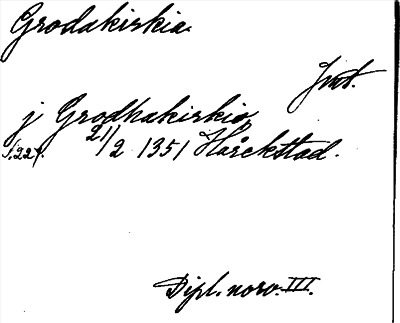 Grodakirkia.
Jmt.
j Grodhakirkio,
s. 227. 21/2 1351 Hårckstad.
Dipl. norv. III.